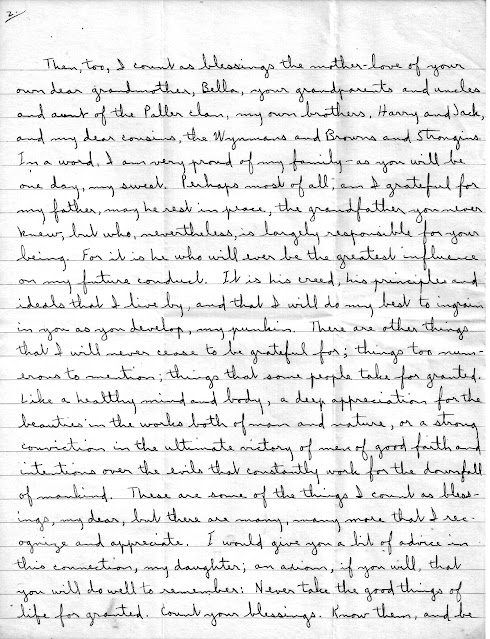 2.
Then, too, I count as blessings the mother-love of your
own dear grandmother, Bella, your grandparents and uncles
and aunt of the Paller clan, my own brothers, Harry and Jack,
and my dear cousins, the Wynmans and Browns and Strongins.
In a word, I am very proud of my family - as you will be
one day, my sweet. Perhaps most of all, am I grateful for
my father, may he rest in peace, the grandfather you never
knew, but who, nevertheless, is largely responsible for your
being. For it is he who will ever be the greatest influence
on my future conduct. It is his creed, his principles and
ideals that I live by, and that I will do my best to ingrain
in you as you develop, my punkin. There are other things
that I will never cease to be grateful for; things too num-
erous to mention; things that some people take for granted.
Like a healthy mind and body, a deep appreciation for the
beauties in the works both of man and nature, or a strong
conviction in the ultimate victory of men of good faith and
intentions over the evils that constantly work for the downfall
of mankind. These are some of the things I count as bless-
ings, my dear, but there are many, many more that I rec-
ognize and appreciate. I would give you a bit of advice in
this connection, my daughter; an axiom, if you will, that
you will do well to remember: Never take the good things of
life for granted. Count your blessings. Know them, and be